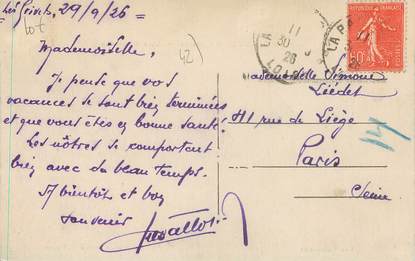 29/9/26
lot
42
Mademoiselle,
Je pense que vos
vacances se sont bien terminées
et que vous êtes en bonne santé.
Les nôtres se comportent
bien avec du beau temps.
A bientôt et bon
souvenir
RÉPUBLIQUE FRANÇAISE
LA
11
30
26
50
Mademoiselle Simone
Liédet
41 rue de Liège
Paris
Seine